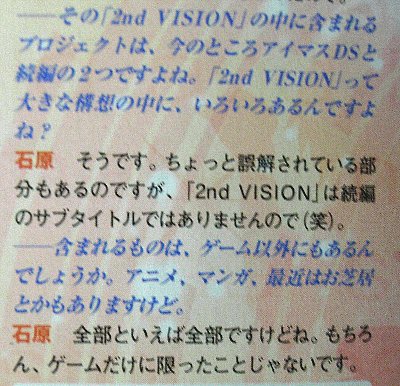 ――その「2nd VISION」の中に含まれる
プロジェクトは、今のところアイマスDSと
続編の2つですよね。「2nd VISION」って
大きな構想の中に、いろいろあるんですよ
ね?
石原　そうです。ちょっと誤解されている部
分もあるのですが、「2nd VISION」は続編
のサブタイトルではありませんので(笑)。
――含まれるものは、ゲーム以外にもあるん
でしょうか。アニメ、マンガ、最近はお芝居
とかもありますけど。
石原　全部といえば全部ですけどね。もちろ
ん、ゲームだけに限ったことじゃないです。